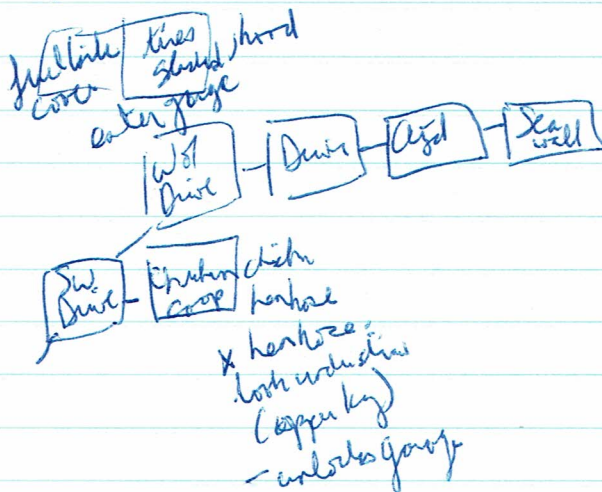 fuel tank
cover
tires
slashed, hood
enter garage
W of
Drive
Drive
Czd
Sea
wall
SW
Drive
chicken
coop
chickn
henhouse
x henhouse.
look under
(copper key)
- unlocks garage